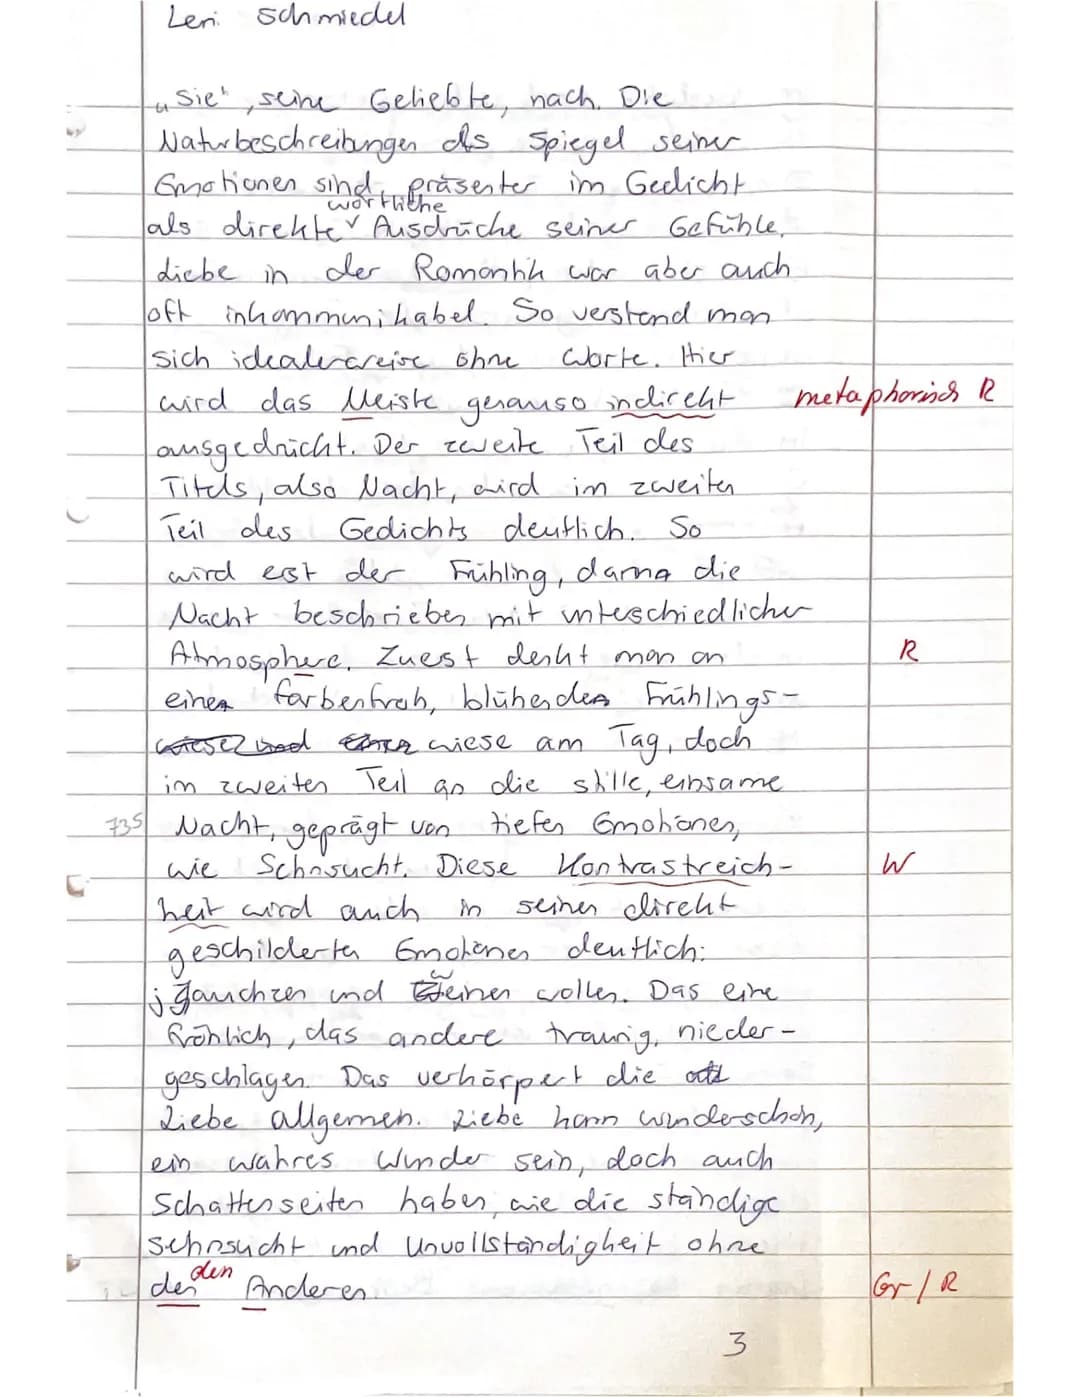 Leni Schmiedel
„Sie", seine Geliebte, nach. Die
Naturbeschreibungen als Spiegel seiner
Emotionen sind präsenter im Gedicht
wörtliche
als direkte Ausdrücke seiner Gefühle.
Liebe in der Romantik war aber auch
oft inkommunikabel. So verstand man
sich idealerweise ohne Worte. Hier
wird das Meiste genauso indirekt metaphorisch R
ausgedrückt. Der zweite Teil des
Titels, also Nacht, wird im zweiten
Teil des Gedichts deutlich. So
wird erst der Frühling, danna die
Nacht beschrieben mit unterschiedlicher
Atmosphere. Zuest denkt man an R
einen farbenfroh, blühenden Frühlings-
wiese am Tag, doch
im zweiten Teil an die stille, einsame
735 Nacht, geprägt von tiefen Emotionen,
wie Sehnsucht. Diese Kontrastreich- W
heit wird auch in seinen direkt
geschilderten Emotionen deutlich:
jauchzen und weinen wollen. Das eine
fröhlich, das andere traurig, nieder-
geschlagen. Das verkörpert die
Liebe allgemein. Liebe kann wunderschön,
ein wahres Wunder sein, doch auch
Schattenseiten haben, wie die ständige
Sehnsucht und Unvollständigkeit ohne
den
der Anderen. Gr / R
3